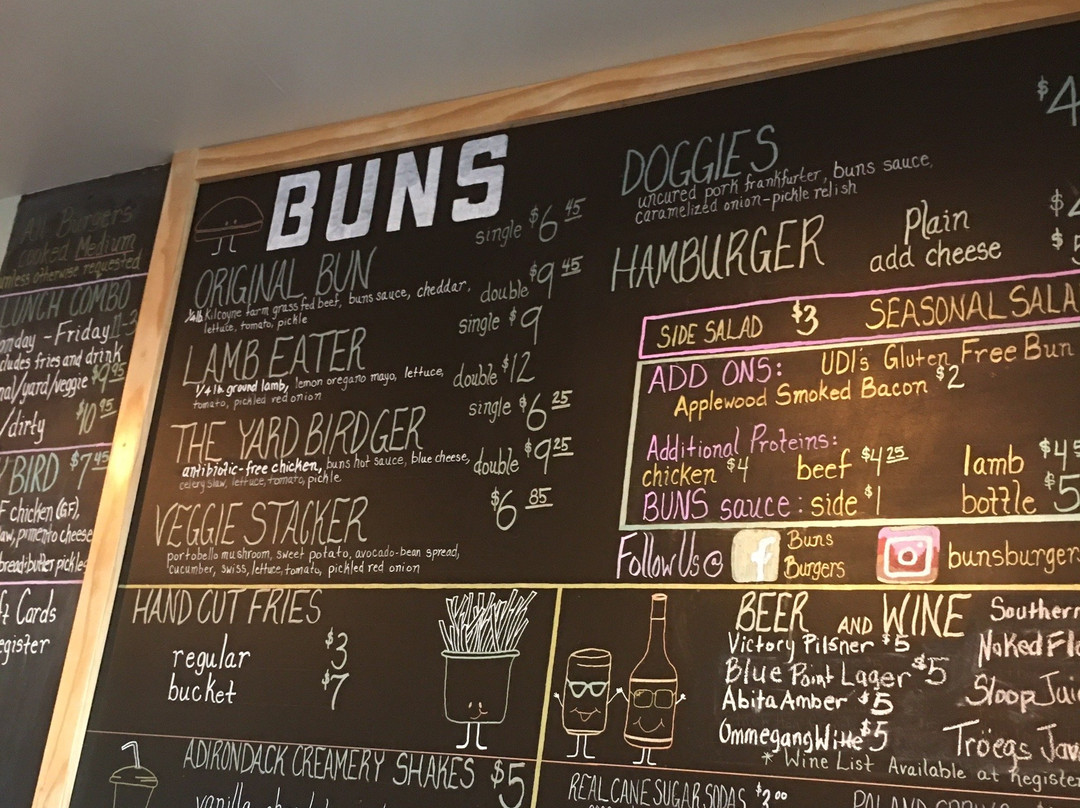 All Burgers
cooked Medium
unless otherwise requested
LUNCH COMBO
onday - Friday 11-3
cludes fries and drink
nal/yard/veggie $9.95
/dirty $10.95
BIRD $7.45
F chicken (GF),
aw, pimento cheese
bread+butter pickles
ft Cards
egister
BUNS
ORIGINAL BUN single $6.45
1/4 lb Kilcoyne farm grass fed beef, buns sauce, cheddar, double $9.45
lettuce, tomato, pickle
LAMB EATER single $9
1/4 lb ground lamb, lemon oregano mayo, lettuce, double $12
tomato, pickled red onion
THE YARD BIRDGER single $6.25
antibiotic-free chicken, buns hot sauce, blue cheese, double $9.25
celery slaw, lettuce, tomato, pickle
VEGGIE STACKER $6.85
portobello mushroom, sweet potato, avocado-bean spread,
cucumber, swiss, lettuce, tomato, pickled red onion
HAND CUT FRIES
regular $3
bucket $7
ADIRONDACK CREAMERY SHAKES $5
DOGGIES $4
uncured pork frankfurter, buns sauce,
caramelized onion-pickle relish
HAMBURGER Plain $
add cheese $5
SIDE SALAD $3 SEASONAL SALA
ADD ONS: UDI's Gluten Free Bun
Applewood Smoked Bacon $2
Additional Proteins:
chicken $4 beef $4.25 lamb $4
BUNS sauce: side $1 bottle $5
Follow Us @ f Buns Burgers bunsburgers
BEER AND WINE Southern
Victory Pilsner $5 Naked Fl
Blue Point Lager $5 Sloop Juic
Abita Amber $5
Ommegang Witte $5 Tröegs Jav
* Wine List Available at Register
REAL CANE SUGAR SODAS $2.00
POLAND SPRING